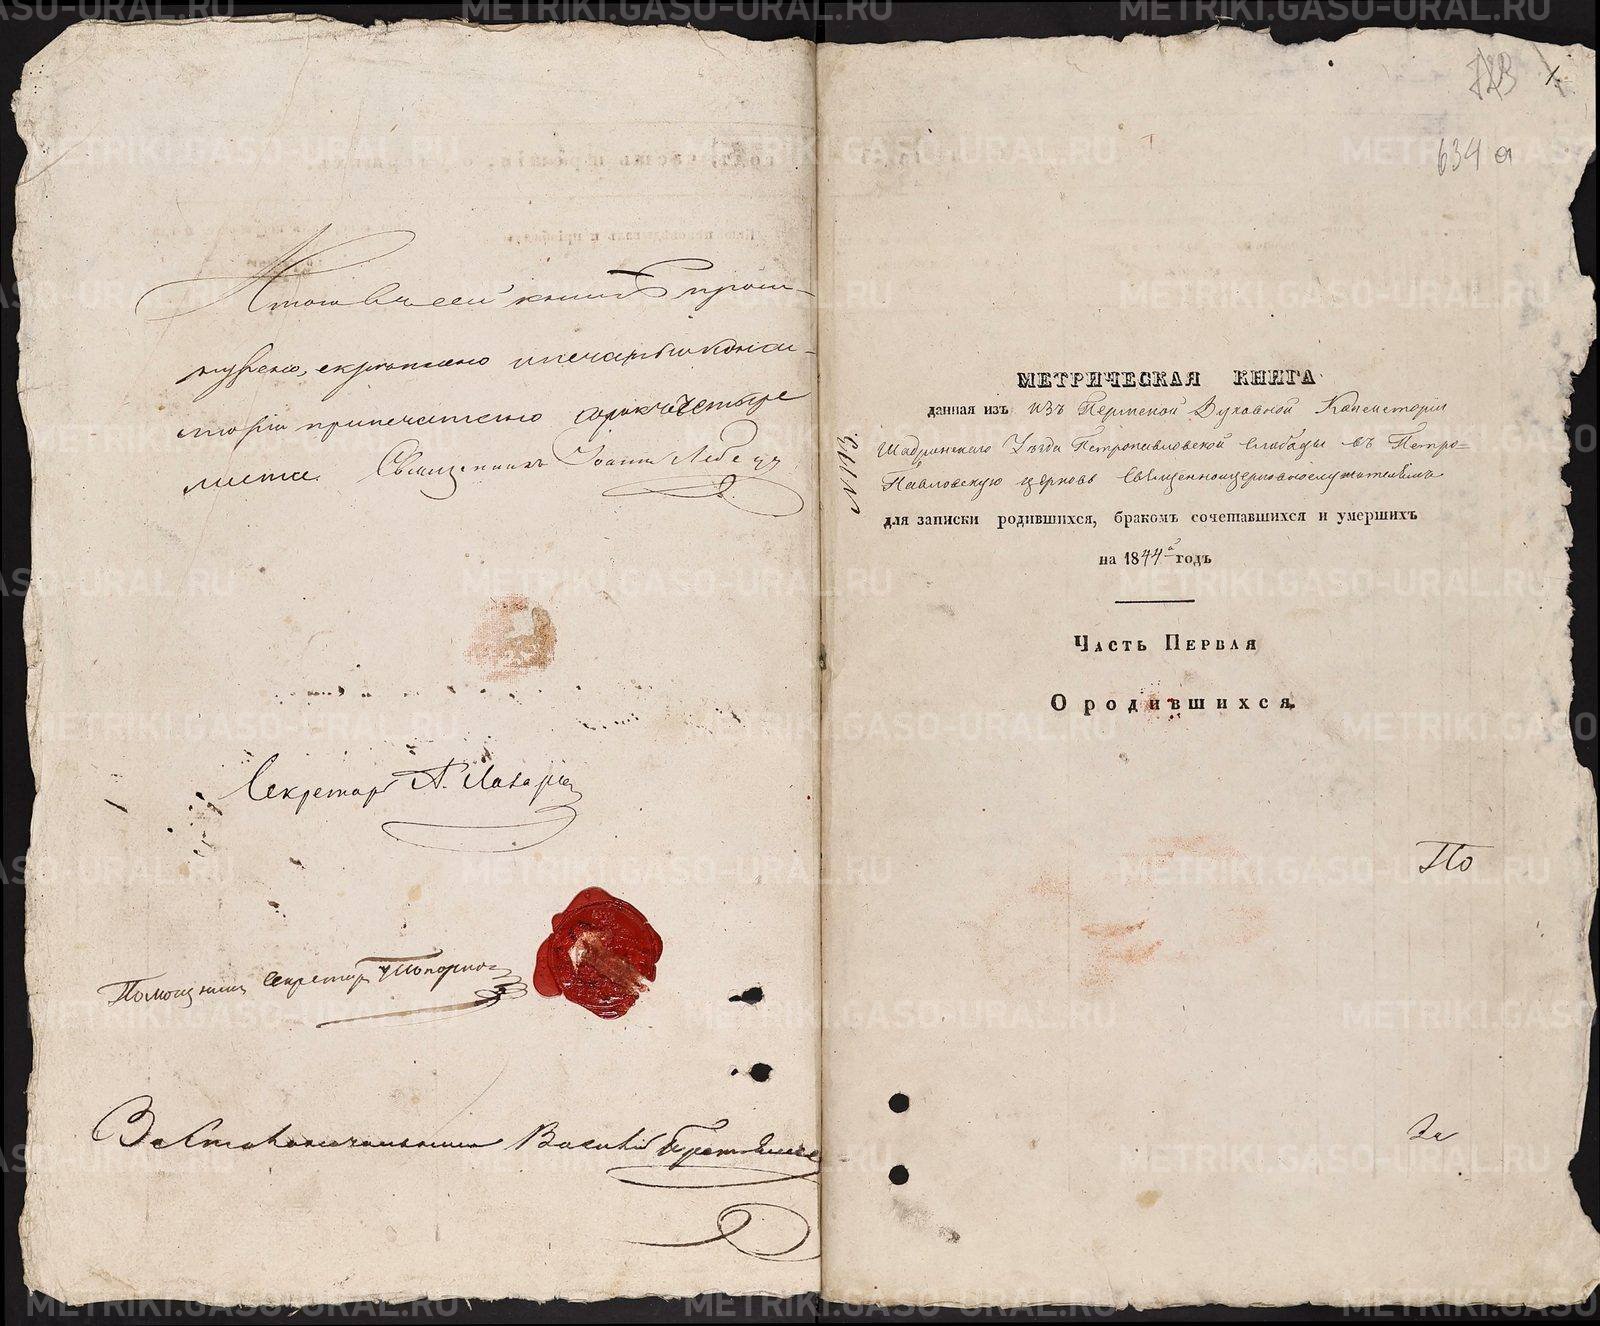 Итого въ сей книгѣ прош-
нуровано, скреплено и печатью конси-
сторіи припечатано сорокъ четыре
листа. Священникъ Іоаннъ
Секретарь А. Лазаре
Помощникъ Секретаря Топорко
За Столоначальника Василій
634 а
МЕТРИЧЕСКАЯ КНИГА
данная изъ изъ Пермской Духовной Консисторіи
Шадринскаго Уѣзда Петропавловской Слободы въ Петро-
Павловскую церковь Священноцерковнослужителямъ
для записки родившихся, бракомъ сочетавшихся и умершихъ
на 1844й годъ
Часть Первая
О родившихся.
По
За
METRIKI.GASO-URAL.RU